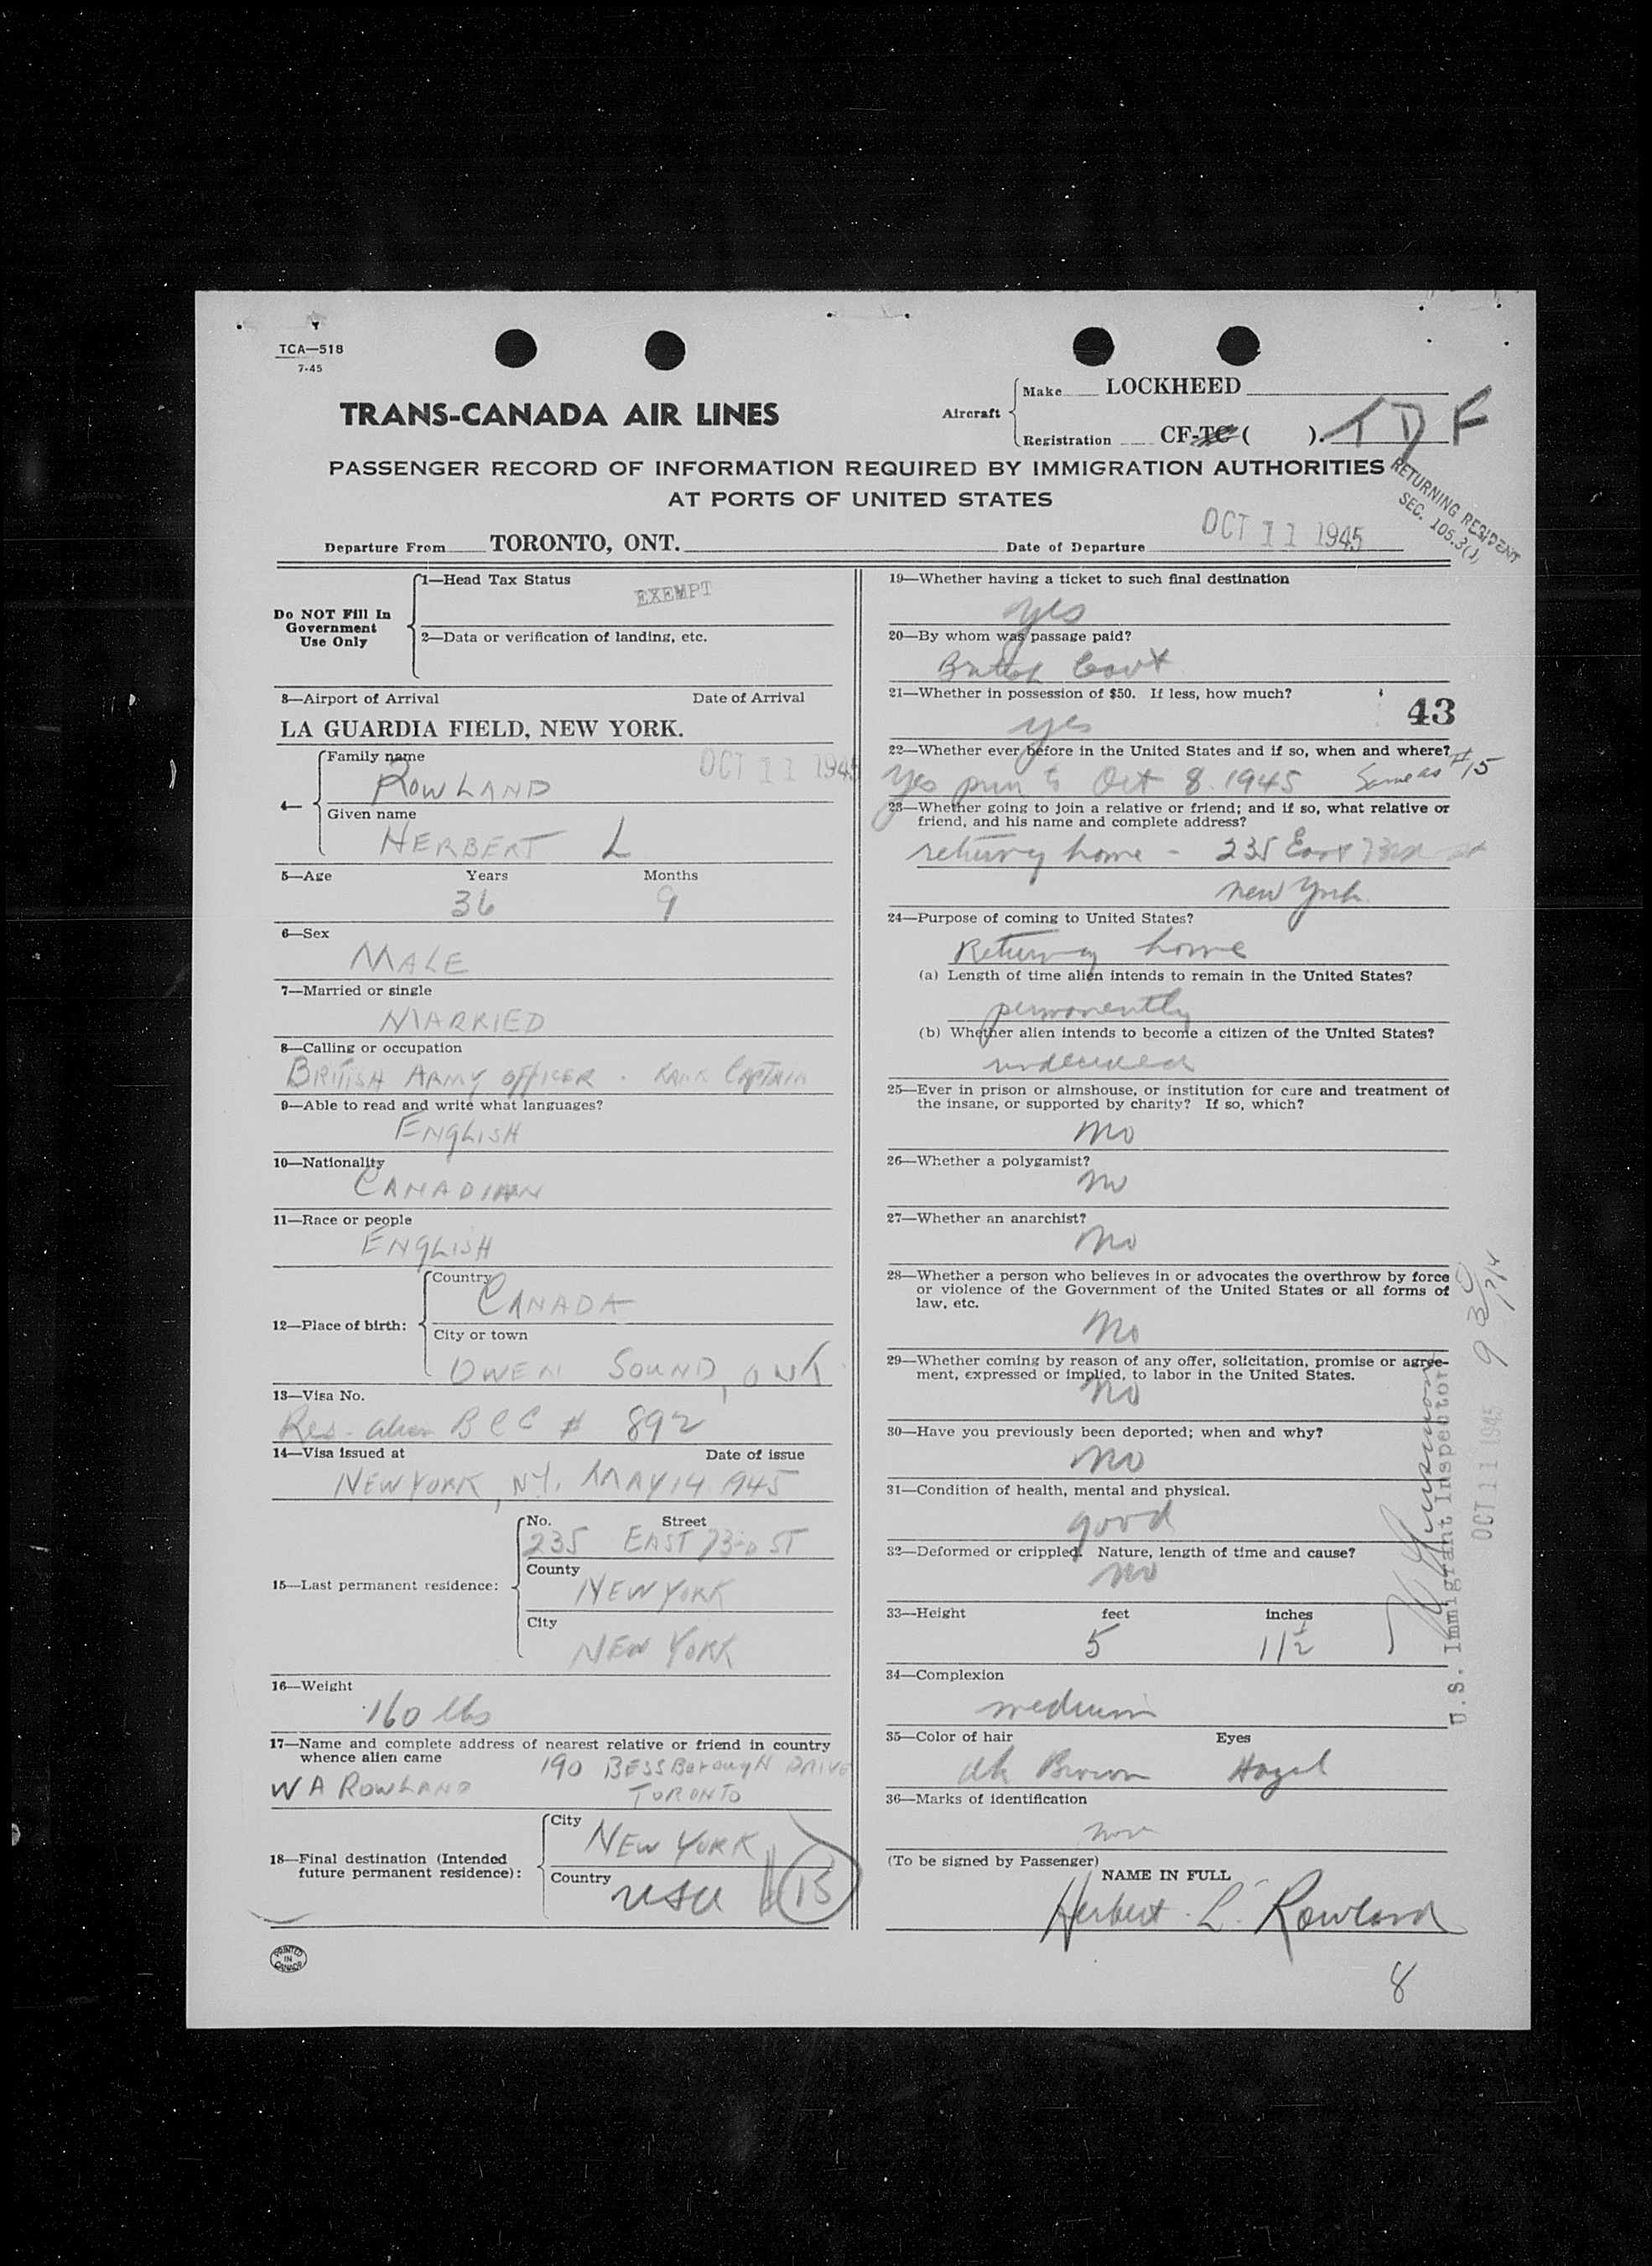 TCA—518
7-45
TRANS-CANADA AIR LINES
Aircraft
Make LOCKHEED
Registration CF-TC ( ). T D F
PASSENGER RECORD OF INFORMATION REQUIRED BY IMMIGRATION AUTHORITIES
AT PORTS OF UNITED STATES
RETURNING RESIDENT
SEC. 105.3(1)
Departure From TORONTO, ONT. Date of Departure OCT 11 1945
Do NOT Fill In
Government
Use Only
1—Head Tax Status
EXEMPT
2—Data or verification of landing, etc.
3—Airport of Arrival Date of Arrival
LA GUARDIA FIELD, NEW YORK.
OCT 11 1945
4—
Family name
ROWLAND
Given name
HERBERT L
5—Age Years Months
36 9
6—Sex
MALE
7—Married or single
MARRIED
8—Calling or occupation
BRITISH ARMY OFFICER . RANK CAPTAIN
9—Able to read and write what languages?
ENGLISH
10—Nationality
CANADIAN
11—Race or people
ENGLISH
12—Place of birth:
Country
CANADA
City or town
OWEN SOUND, ONT
13—Visa No.
Res. alien B C C # 892
14—Visa issued at Date of issue
NEW YORK, N.Y. MAY 14 1945
15—Last permanent residence:
No. Street
235 EAST 73RD ST
County
NEW YORK
City
NEW YORK
16—Weight
160 lbs
17—Name and complete address of nearest relative or friend in country
whence alien came
190 BESSBOROUGH DRIVE
W A ROWLAND TORONTO
18—Final destination (Intended
future permanent residence):
City
NEW YORK
Country
USA
PRINTED
IN
CANADA
19—Whether having a ticket to such final destination
yes
20—By whom was passage paid?
British Govt
21—Whether in possession of $50. If less, how much?
43
yes
22—Whether ever before in the United States and if so, when and where?
Yes prior to Oct 8. 1945 Same as #15
23—Whether going to join a relative or friend; and if so, what relative or
friend, and his name and complete address?
returning home - 235 East 73rd st
new york
24—Purpose of coming to United States?
Returning home
(a) Length of time alien intends to remain in the United States?
permanently
(b) Whether alien intends to become a citizen of the United States?
undecided
25—Ever in prison or almshouse, or institution for care and treatment of
the insane, or supported by charity? If so, which?
no
26—Whether a polygamist?
no
27—Whether an anarchist?
no
28—Whether a person who believes in or advocates the overthrow by force
or violence of the Government of the United States or all forms of
law, etc.
no
29—Whether coming by reason of any offer, solicitation, promise or agree-
ment, expressed or implied, to labor in the United States.
no
30—Have you previously been deported; when and why?
no
31—Condition of health, mental and physical.
good
32—Deformed or crippled. Nature, length of time and cause?
no
33—Height feet inches
5 11½
34—Complexion
medium
35—Color of hair Eyes
dk Brown Hazel
36—Marks of identification
(To be signed by Passenger)
NAME IN FULL
Herbert L. Rowland
8
U.S. Immigrant Inspector
OCT 11 1945